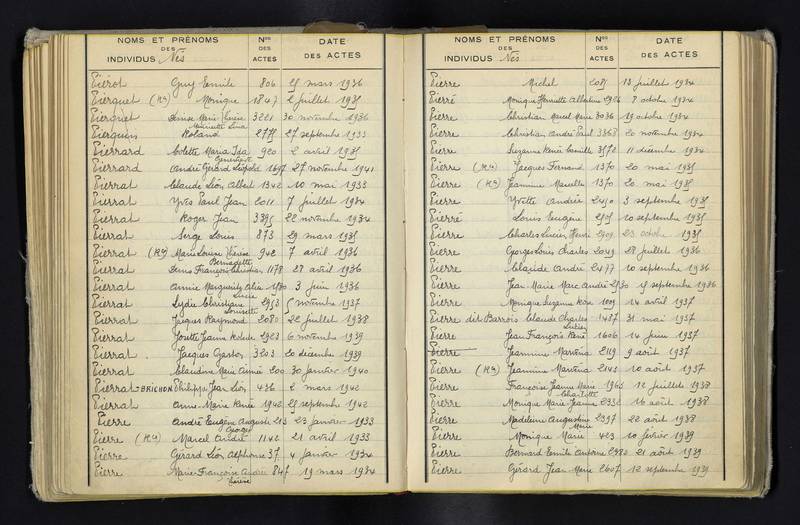 NOMS ET PRÉNOMS Nos DATE
DES DES
INDIVIDUS Nés ACTES DES ACTES
Piérot Guy Emile 806 25 mars 1936
Pierquet (Rn) Monique 1847 2 juillet 1935
Pierquet Denise Marie Thérèse 3221 30 novembre 1936
Henriette Lina
Pierquin Roland 2775 27 septembre 1933
Pierrard Colette Maria Ida 920 2 avril 1935
Geneviève
Pierrard André Gérard Léopold 1697 27 novembre 1941
Pierrat Claude Léon Albert 1342 10 mai 1933
Pierrat Yves Paul Jean 2011 7 juillet 1934
Pierrat Roger Jean 3395 22 novembre 1934
Pierrat Serge Louis 873 29 mars 1935
Pierrat (Rn) Marie Louise Thérèse 942 7 avril 1936
Bernadette
Pierrat Denis François Christian 1178 28 avril 1936
Pierrat Annie Marguerite Alice 3 juin 1936
Lucie
Pierrat Lydie Christiane 2953 5 novembre 1937
Louisette
Pierrat Jacques Raymond 2080 22 juillet 1938
Pierrat Josette Jeanne 2923 6 novembre 1939
Pierrat Jacques Gaston 3203 20 décembre 1939
Pierrat Claudine Marie Aimée 200 30 janvier 1940
Pierrat-BRICHON Philippe Jean Léon 436 2 mars 1942
Pierrat Anne Marie Renée 1942 25 septembre 1942
Pierre André Eugène Auguste 213 23 janvier 1933
Georges
Pierre (Rn) Marcel André 1142 21 avril 1933
Pierre Gérard Léon Alphonse 37 4 janvier 1934
Pierre Marie-Françoise Andrée 847 19 mars 1934
Thérèse
NOMS ET PRÉNOMS Nos DATE
DES DES
INDIVIDUS Nés ACTES DES ACTES
Pierre Michel 2085 13 juillet 1934
Pierré Monique Henriette Albertine 2926 8 octobre 1934
Pierre Christian Marcel Marie 3036 19 octobre 1934
Pierre Christian André Paul 3368 20 novembre 1934
Pierre Suzanne Renée Camille 3572 11 décembre 1934
Pierre (Rn) Jacques Fernand 1370 20 mai 1935
Pierre (Rn) Jeannine Marcelle 1370 20 mai 1935
Pierre Yvette Andrée 2450 3 septembre 1935
Pierré Louis Eugène 2505 10 septembre 1935
Pierre Charles Lucien Henri 2909 23 octobre 1935
Pierre Georges Louis Charles 2049 28 juillet 1936
Pierre Claude André 2477 10 septembre 1936
Pierre Jean Marie Marc André 2530 15 septembre 1936
Pierre Monique Suzanne Rose 1009 14 avril 1937
Pierre dit Barrois Claude Charles 1487 31 mai 1937
Lucien
Pierre Jean François René 1606 14 juin 1937
Pierre Jeannine Martina 2119 9 août 1937
Pierre (Rn) Jeannine Martina 2142 10 août 1937
Pierre Françoise Jeanne Marie 1965 12 juillet 1938
Charlotte
Pierre Monique Marie-Jeanne 2332 16 août 1938
Pierre Madeleine Augustine 2397 22 août 1938
Marie
Pierre Monique Marie 423 10 février 1939
Pierre Bernard Emile Antoine 2280 21 août 1939
Pierre Gérard Jean Marie 2607 12 septembre 1939